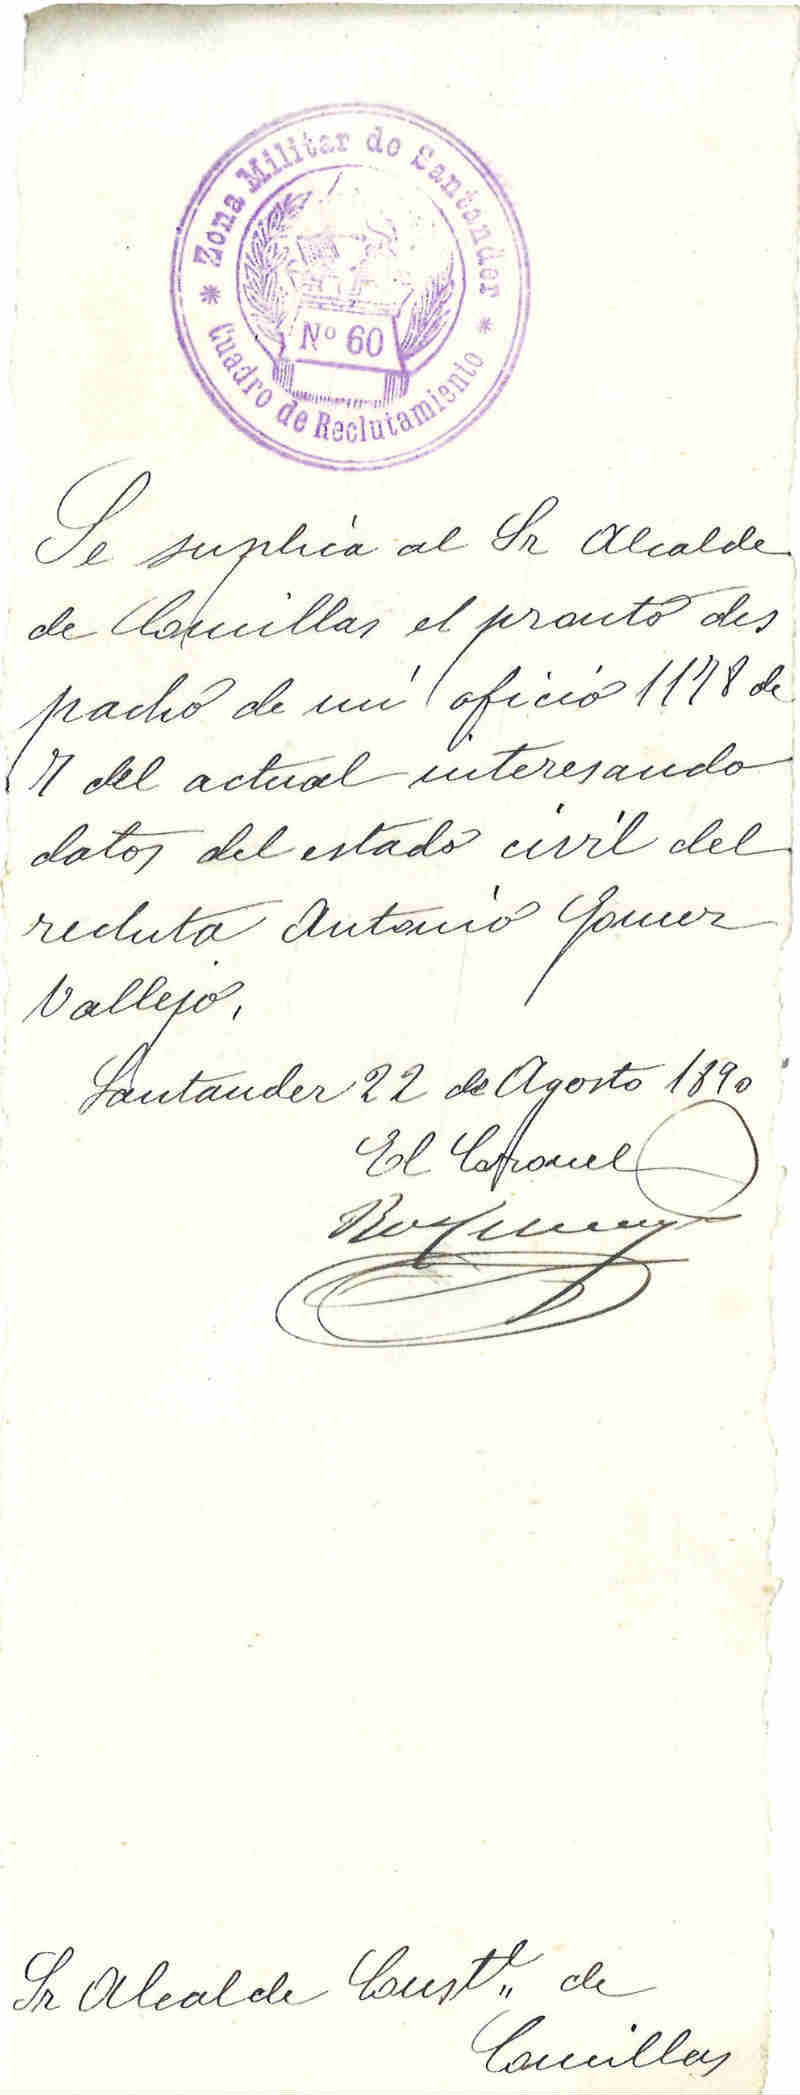 * Zona Militar de Santander *
Cuadro de Reclutamiento
Nº 60
Se suplica al Sr Alcalde
de Comillas el pronto des
pacho de mi oficio 1178 de
7 del actual interesando
datos del estado civil del
recluta Antonio Gomez
Vallejo,
Santander 22 de Agosto 1890
El Coronel
Sr Alcalde Constl,, de
Comillas